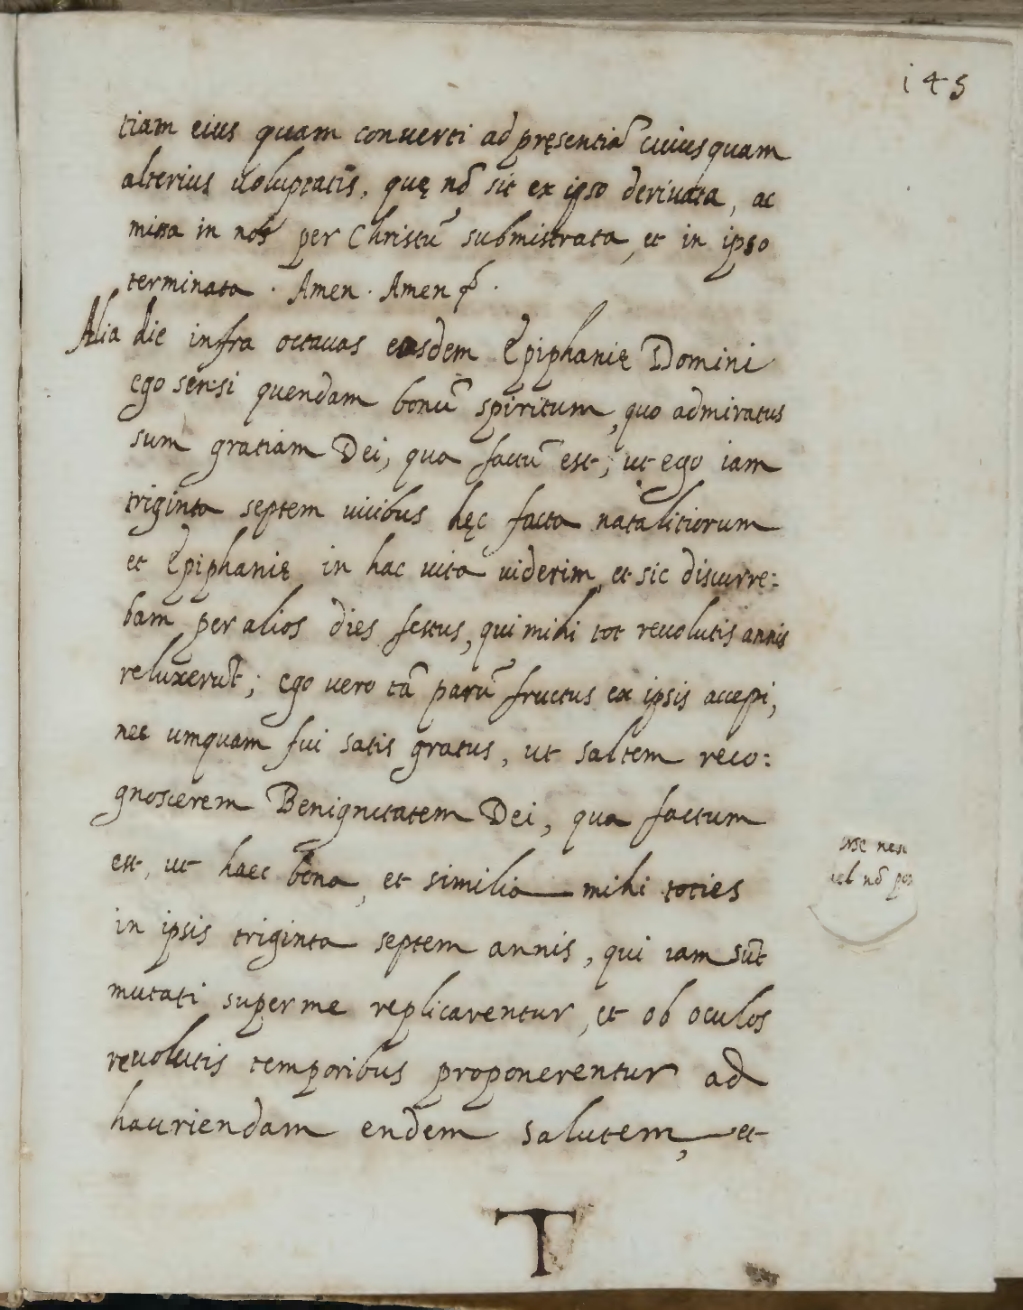 145
tiam eius quam conuerti ad pręsentiā cuiusquam
alterius uoluptatis, quę nō sit ex ipso deriuata, ac
missa in nos per Christū submistrata, et in ipso
terminata. Amen. Amen
Alia die infra octauas easdem Epiphanię Domini
ego sensi quendam bonū spiritum, quo admiratus
sum gratiam Dei, qua factū est; ut ego iam
triginta septem uicibus hęc facta natalitiorum
et Epiphanię in hac uita uiderim, et sic discurre:
bam per alios dies festus, qui mihi tot reuolutis annis
reluxerūt; ego uero tā parū fructus ex ipsis accepi,
nec umquam fui satis gratus, ut saltem reco:
gnoscerem Benignitatem Dei, qua factum
est, ut haec bona, et similia mihi toties
in ipsis triginta septem annis, qui iam sūt
mutati super me replicarentur, et ob oculos
reuolutis temporibus proponerentur ad
hauriendam endem salutem, et
uel nō
T